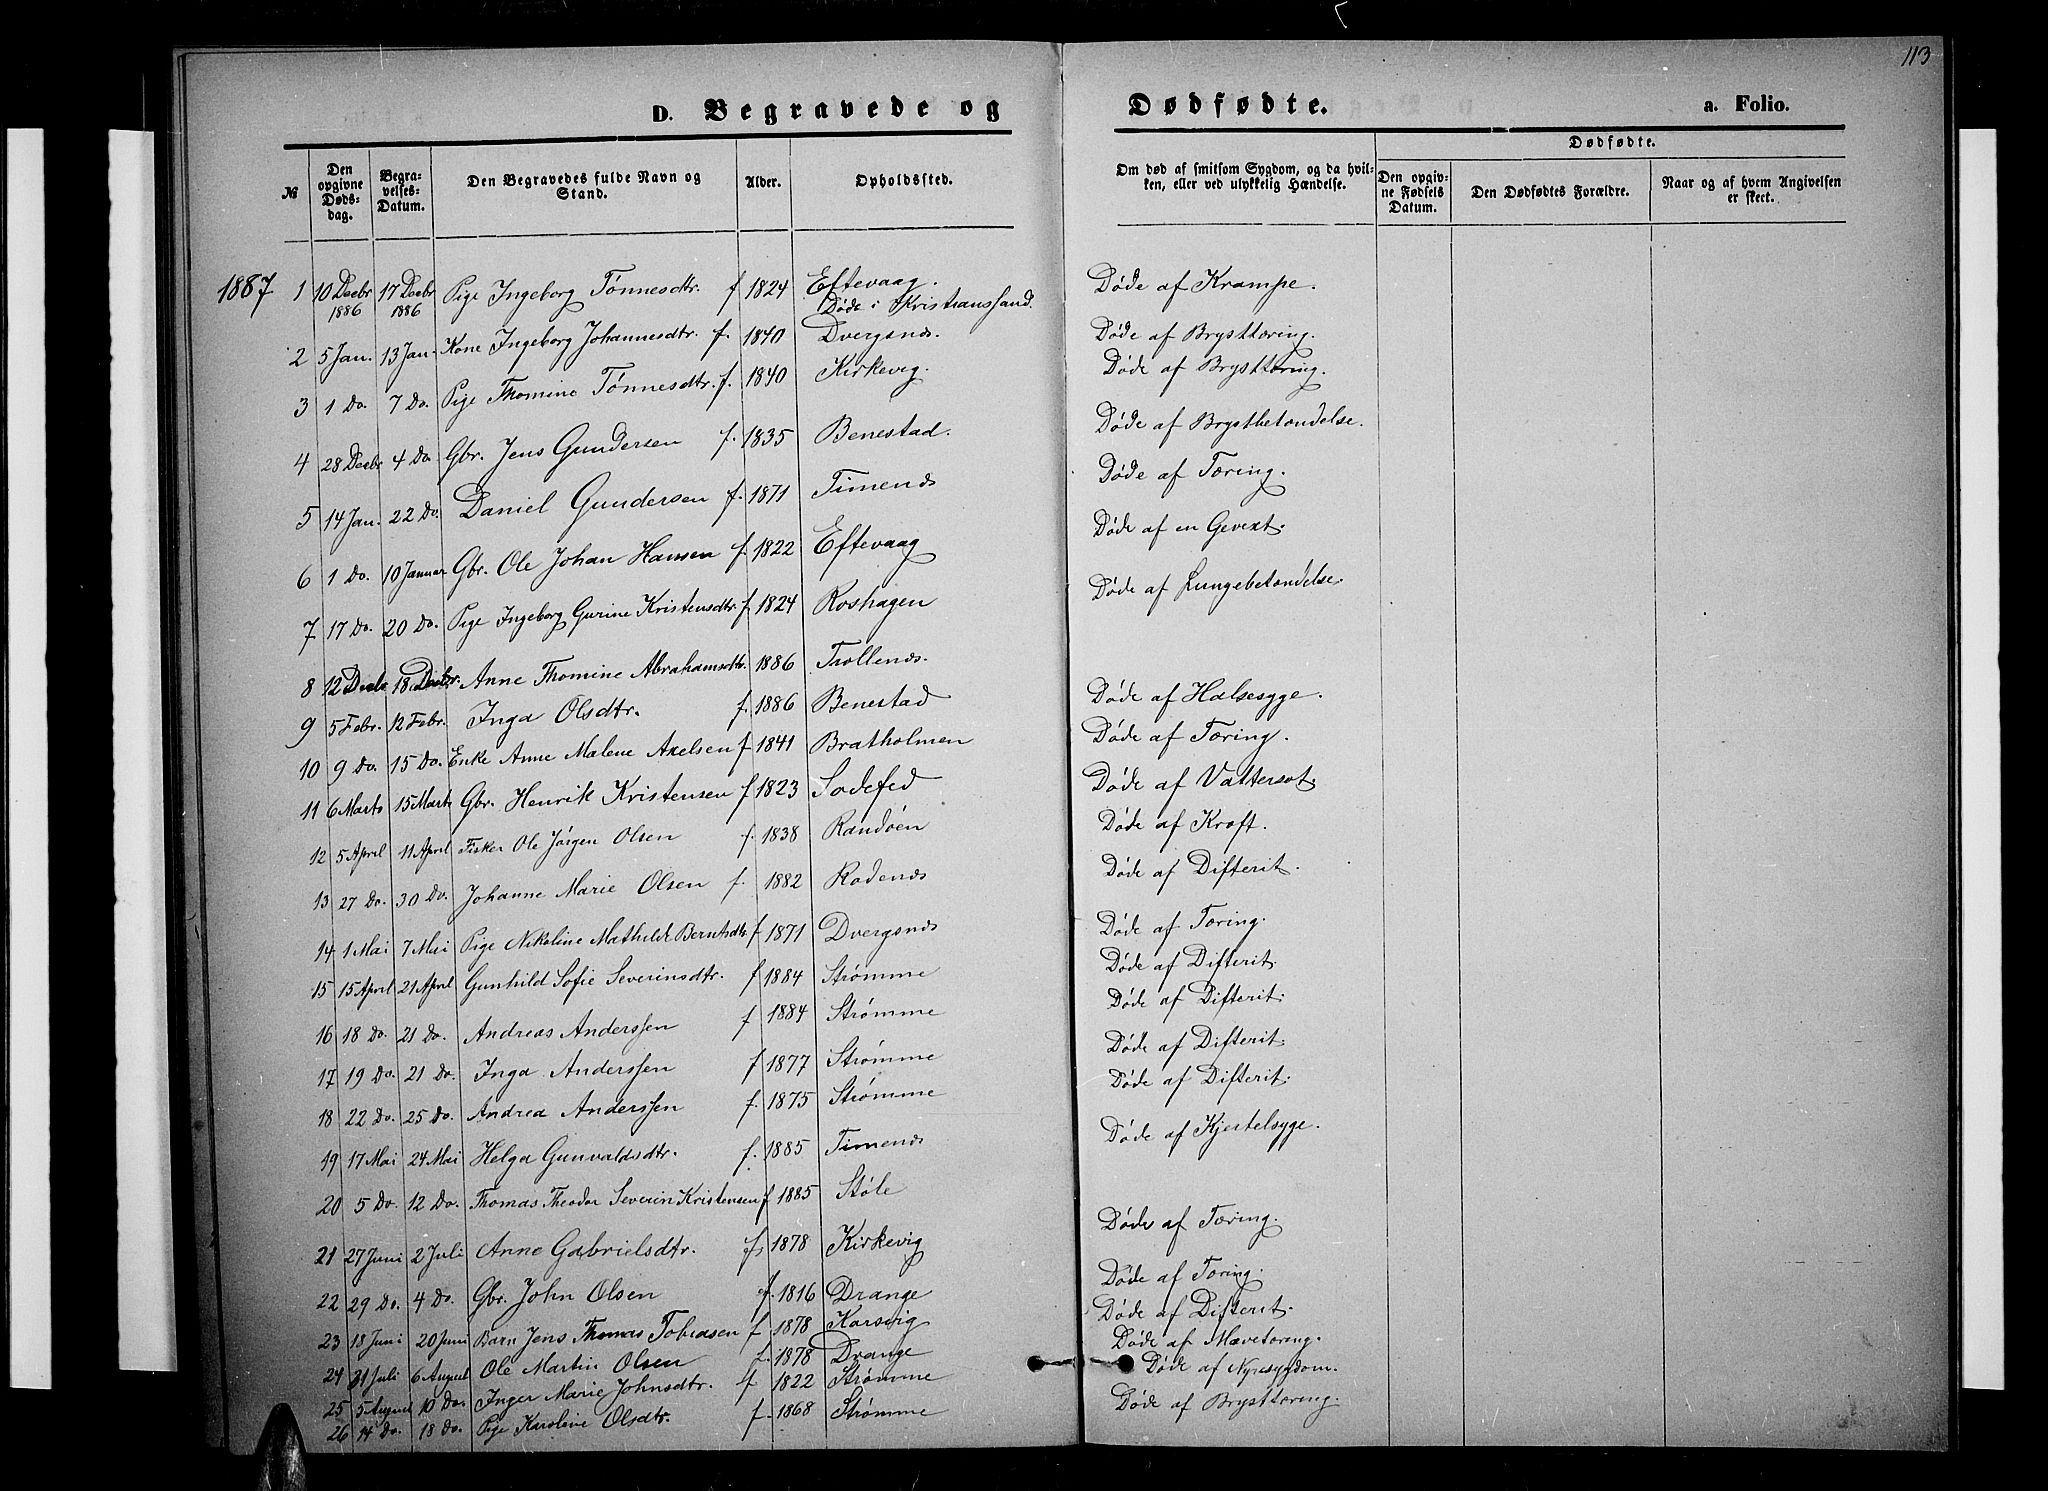 113
D. Begravede og Dødfødte. a. Folio.
№ Den opgivne Dødsdag. Begravelses-Datum. Den Begravedes fulde Navn og Stand. Alder. Opholdssted. Om død af smitsom Sygdom, og da hvilken, eller ved ulykkelig Hændelse. Dødfødte. Den opgivne Fødsels Datum. Den Dødfødtes Forældre. Naar og af hvem Angivelsen er skeet.
1887 1 10 Decbr 1886 17 Decbr 1886 Pige Ingeborg Tønnesdtr. f 1824 Eftevaag. Døde i Kristianssand. Døde af Krampe.
2 5 Jan. 13 Jan. Kone Ingeborg Johannesdtr. f. 1840 Dvergsnæs. Døde af Brysttæring.
3 1 Do. 7 Do. Pige Thomine Tønnesdtr. f. 1840 Kirkevig. Døde af Brysttæring.
4 28 Decbr 4 Do. Gbr. Jens Gundersen f. 1835 Benestad. Døde af Brystbetændelse.
5 14 Jan. 22 Do. Daniel Gundersen f. 1871 Timenæs Døde af Tæring.
6 1 Do. 10 Januar Gbr. Ole Johan Hansen f. 1822 Eftevaag Døde af en Gevext.
7 17 Do. 20 Do. Pige Ingeborg Gurine Kristensdtr f. 1824 Roshagen Døde af Lungebetændelse.
8 12 Decbr 18 Decbr. Anne Thomine Abrahamsdtr. 1886 Trollenæs.
9 5 Febr. 12 Febr. Inga Olsdtr. f. 1886 Benestad Døde af Halsesyge.
10 9 Do. 15 Do. Enke Anne Malene Axelsen f 1841 Bratholmen Døde af Tæring.
11 6 Marts 15 Marts Gbr. Henrik Kristensen f 1823 Sodefed Døde af Vattersot.
12 5 April 11 April Fisker Ole Jørgen Olsen f. 1838 Randøen Døde af Kræft.
13 27 Do. 30 Do. Johanne Marie Olsen f. 1882 Rodenæs Døde af Difterit.
14 1 Mai 7 Mai Pige Nikoline Mathilde Berntsdtr f 1871 Dvergsnæs Døde af Tæring.
15 15 April 21 April Gunhild Sofie Severinsdtr. f 1884 Strømme Døde af Difterit.
16 18 Do. 21 Do. Andreas Anderssen f 1884 Strømme Døde af Difterit.
17 19 Do. 21 Do. Inga Anderssen f 1877 Strømme Døde af Difterit.
18 22 Do. 25 Do. Andrea Anderssen f. 1875 Strømme Døde af Difterit.
19 17 Mai 24 Mai Helga Gunvaldsdtr. f. 1885 Timenæs Døde af Kjertelsyge.
20 5 Do. 12 Do. Thomas Theodor Severin Kristensen f 1885 Støle
21 27 Juni 2 Juli Anne Gabrielsdtr. f. 1878 Kirkevig Døde af Tæring.
22 29 Do. 4 Do. Gbr. John Olsen f. 1816 Drange Døde af Tæring.
23 18 Juni 20 Juni Barn Jens Thomas Tobiasen f 1878 Korsvig Døde af Difterit.
24 31 Juli 6 August Ole Martin Olsen f. 1878 Drange Døde af Mavetæring.
25 5 August 10 Do. Inger Marie Johnsdtr. f 1822 Strømme Døde af Nyresygdom.
26 14 Do. 18 Do. Pige Karoline Olsdtr. f. 1868 Strømme Døde af Brysttæring.